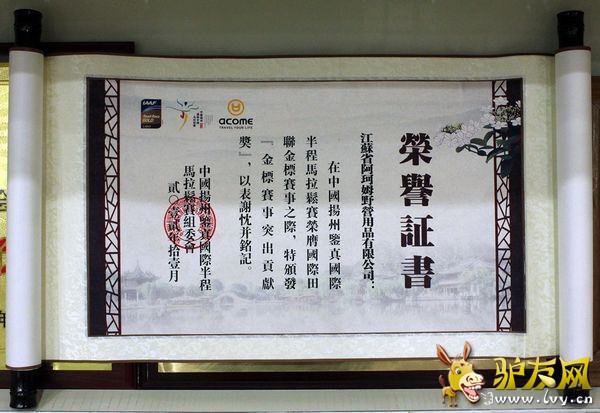 IAAF
Road Race
GOLD
acome
TRAVEL YOUR LIFE
榮譽証書
江蘇省阿珂姆野營用品有限公司：
在中國揚州鑒真國際
半程馬拉鬆賽榮膺國際田
聯金標賽事之際，特頒發
『金標賽事突出貢獻
獎』，以表謝忱并銘記。
中國揚州鑒真國際半程
馬拉鬆賽組委會
貳〇壹貳年拾壹月
驴友网
www.lvy.cn